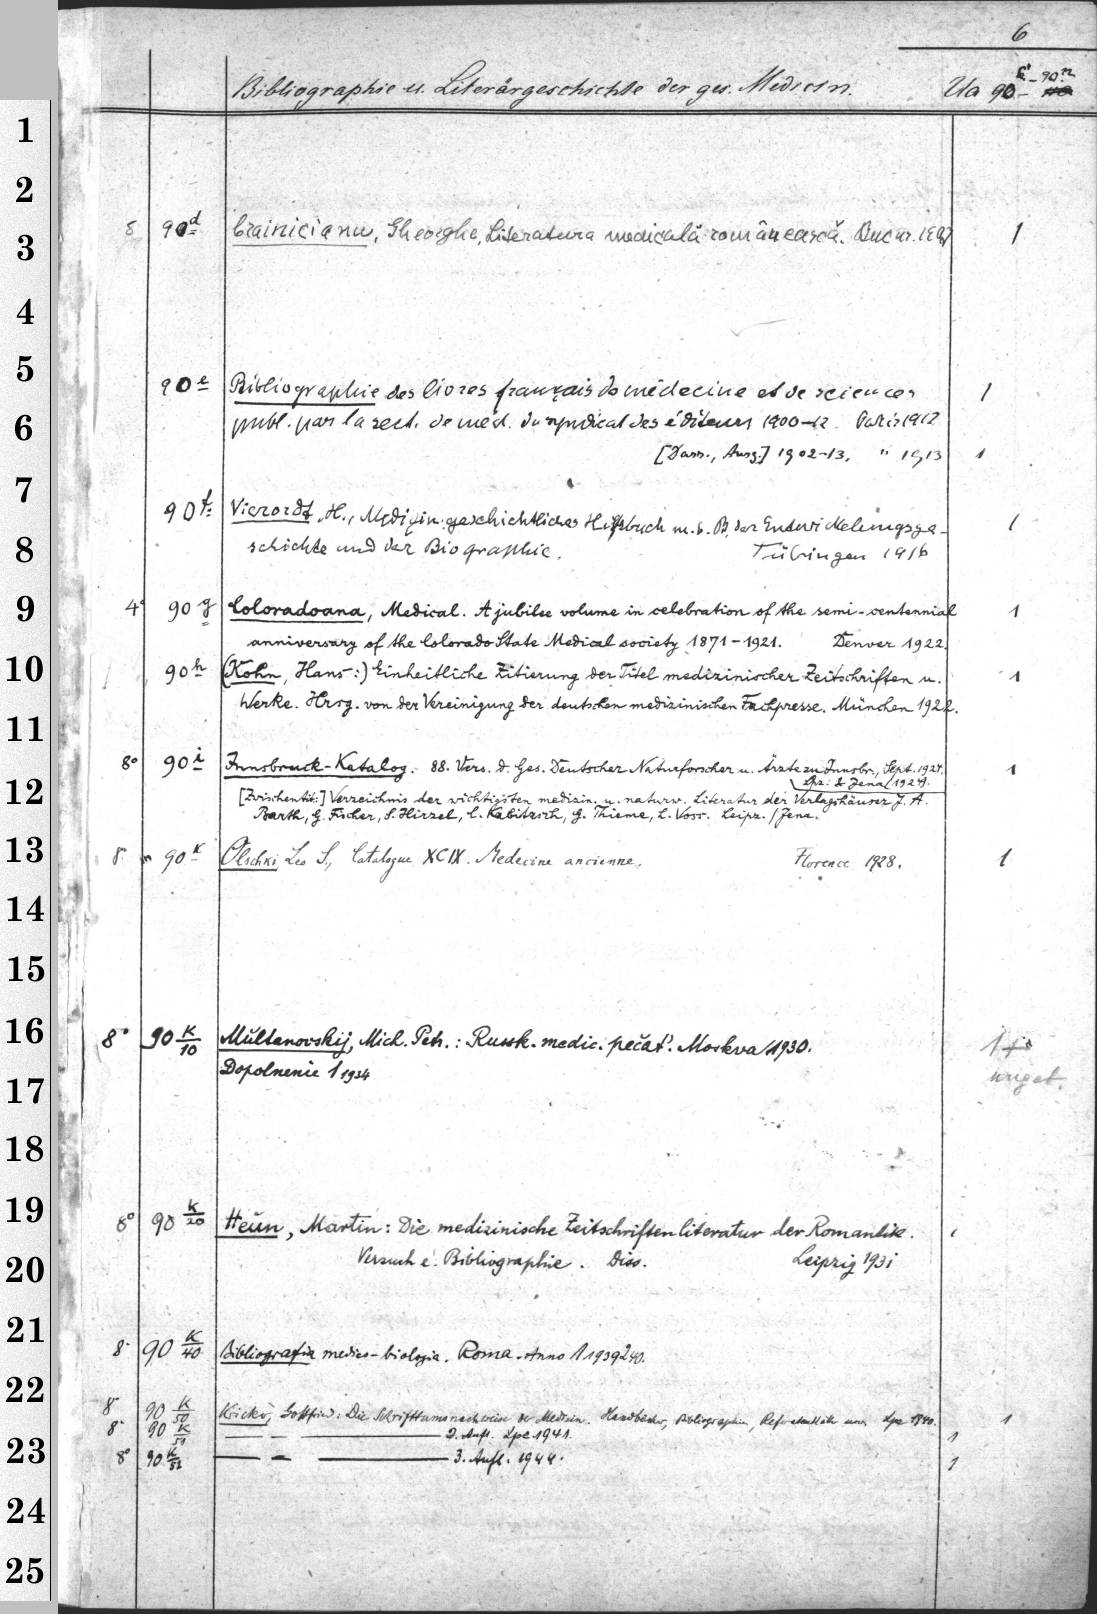 6
Bibliographie u. Literärgeschichte der ges. Medicin. Ua 90 – 90n
1
2
8 90d Crainicianu, Gheorghe, Literatura medicală românească. Bucur. 1907 1
3
4
5
90e Bibliographie des livres français de médecine et de sciences 1
6 publ. par la sect. de méd. du syndicat des éditeurs 1900–12. Paris 1912
[Dass., Ausg.] 1902–13. " 1913 1
7
90f Vierordt, H., Medizin-geschichtliches Hilfsbuch m. b. B. der Entwickelungsge- 1
8 schichte und der Biographie. Tübingen 1916
9 4° 90g Coloradoana, Medical. A jubilee volume in celebration of the semi-centennial 1
anniversary of the Colorado State Medical society 1871–1921. Denver 1922.
10 90h (Kohn, Hans:) Einheitliche Zitierung der Titel medizinischer Zeitschriften u. 1
Werke. Hrsg. von der Vereinigung der deutschen medizinischen Fachpresse. München 1922.
11
8° 90i Innsbruck-Katalog. 88. Vers. d. Ges. Deutscher Naturforscher u. Ärzte zu Innsbr., Sept. 1924. 1
Lpz. & Jena (1924).
12 [Zwischentit:] Verzeichnis der wichtigsten medizin. u. naturw. Literatur der Verlagshäuser J. A.
Barth, G. Fischer, S. Hirzel, C. Kabitzsch, G. Thieme, L. Voss. Leipz. / Jena.
13 8 90k Olschki Leo S., Catalogue XCIX. Medecine ancienne. Florence 1928. 1
14
15
16 8° 90 K/10 Multanovskij, Mich. Petr.: Russk. medic. pečat'. Moskva 1930. 1
Dopolnenie 1 1934
17
18
19 8° 90 K/20 Heun, Martin: Die medizinische Zeitschriftenliteratur der Romantik. 1
20 Versuch e. Bibliographie. Diss. Leipzig 1931
21
8 90 K/40 Bibliografia medico-biologia. Roma. Anno 1 1939 2 40.
22
8 90 K/50 Krickó, Gottfried: Die Schrifttumsnachweise der Medizin. Handbücher, Bibliographien, Lpz 1940. 1
8 90 K/51 — – — 2. Aufl. Lpz 1941. 1
23 8° 90 K/52 — – — 3. Aufl. 1944. 1
24
25